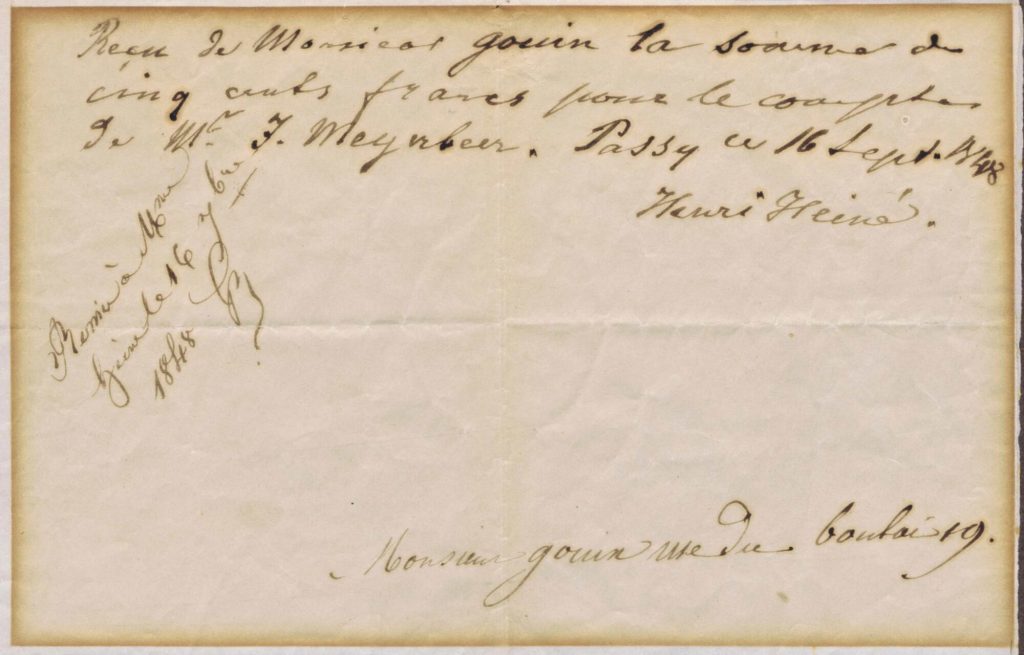 Reçu de Monsieur gouin la somme de
cinq cents francs pour le compte
de Mr. J. Meyerbeer. Passy ce 16 Sept. 1848
Henri Heiné.
Remis à Mme
heine le 16 7bre
1848
Monsieur gouin rue du bouloi 19.